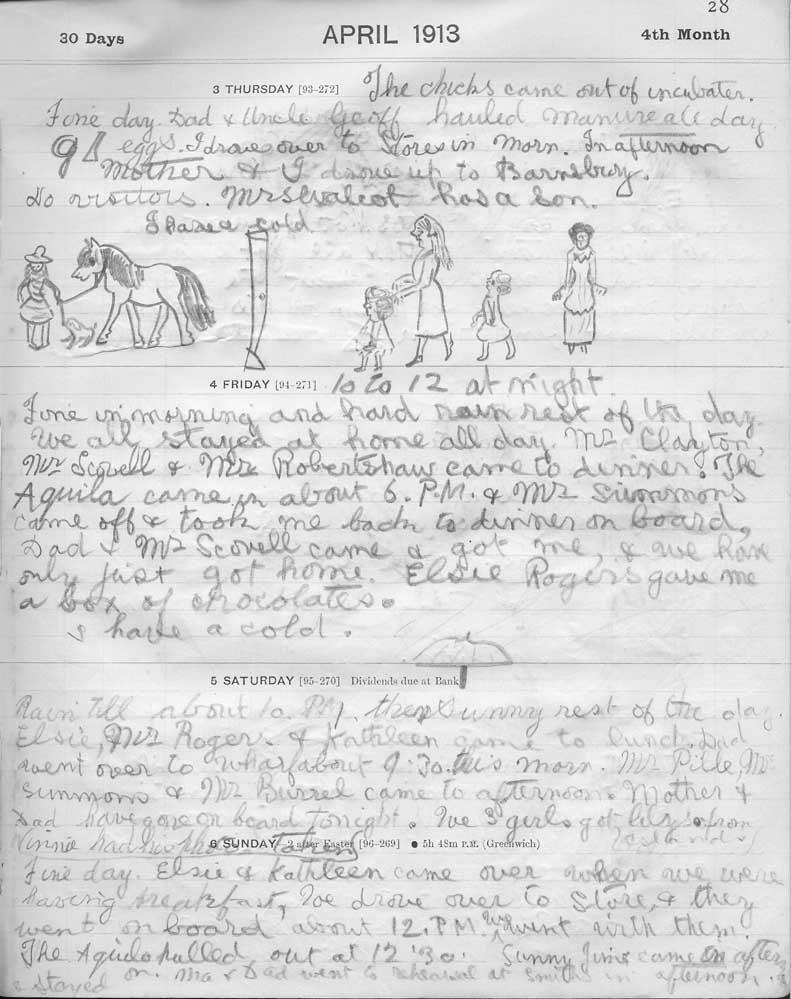 28
30 Days APRIL 1913 4th Month
3 THURSDAY [93-272] The chicks came out of incubater.
Fine day. Dad & Uncle Geoff hauled manure all day
91 eggs. I drove over to Stores in morn. In afternoon
Mother & I drove up to Barnsbury.
No visitors. Mrs has a son.
I have a cold
4 FRIDAY [94-271] 10 to 12 at night
Fine in morning and hard rain rest of the day.
We all stayed at home all day. Mr Clayton,
Mr Scovell & Mr Robertshaw came to dinner. The
Aquila came in about 6. P.M. & Mr Simmons
came off & took me back to dinner on board,
Dad & Mr Scovell came & got me, & we have
only just got home. Elsie Rogers gave me
a box of chocolates.
I have a cold.
5 SATURDAY [95-270] Dividends due at Bank
Rain till about 10. PM. then Sunny rest of the day.
Elsie, Mr Rogers & Kathleen came to lunch. Dad
went over to wharf about 9.30. this morn. Mr Mr
Simmons & Mr Burrel came to afternoon. Mother &
Dad have gone on board tonight. We 3 girls got from
Winnie had his taken
6 SUNDAY—2 after Easter [96-269] ● 5h 48m P.M. (Greenwich)
Fine day. Elsie & Kathleen came over when we were
having breakfast, We drove over to Store, & they
went on board about 12. P.M. we went with them.
The Aquila pulled out at 12.30. Sunny Jim came in after
& stayed on. Ma & Dad went to rehearsal at Smiths in afternoon.